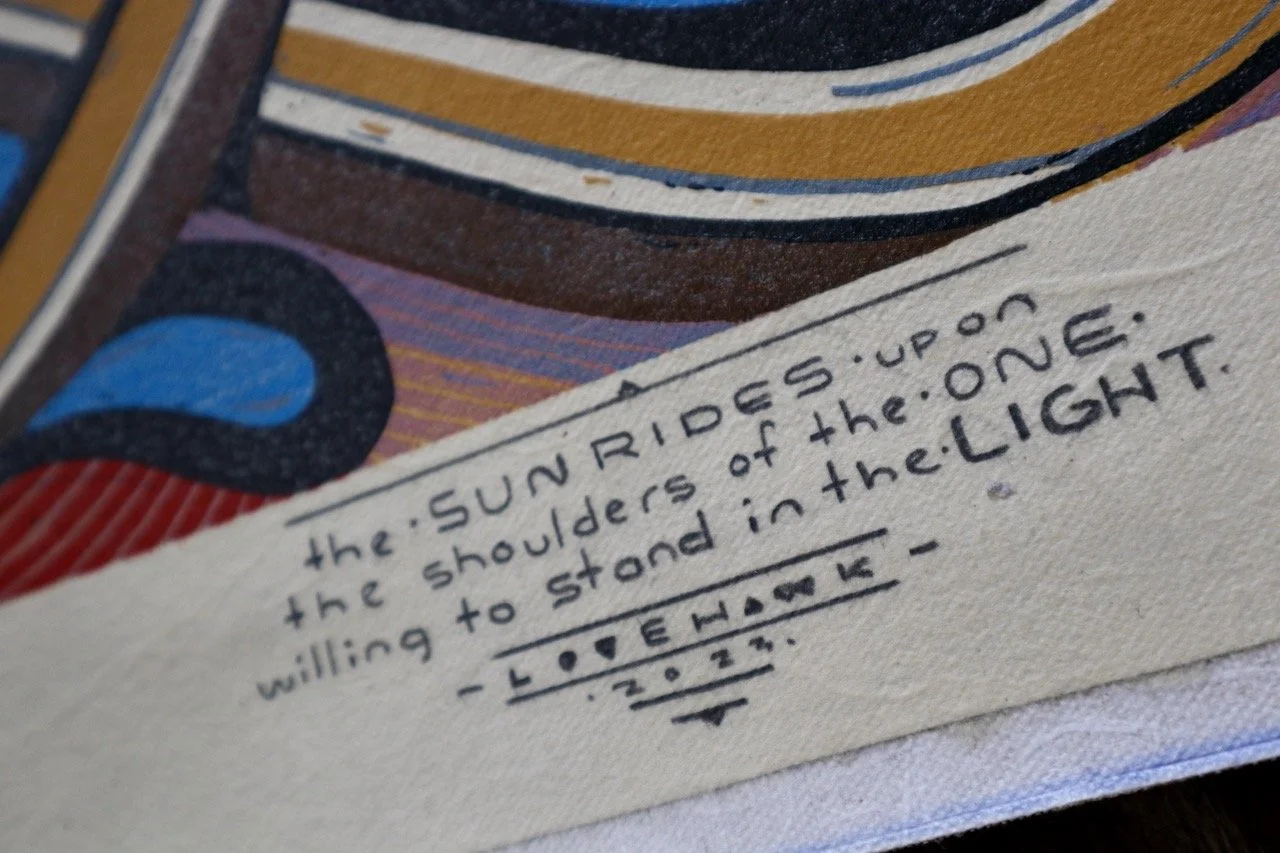 the·SUN RIDES·upon
the shoulders of the·ONE·
willing to stand in the·LIGHT.
- LOVEHAWK -
.2022.